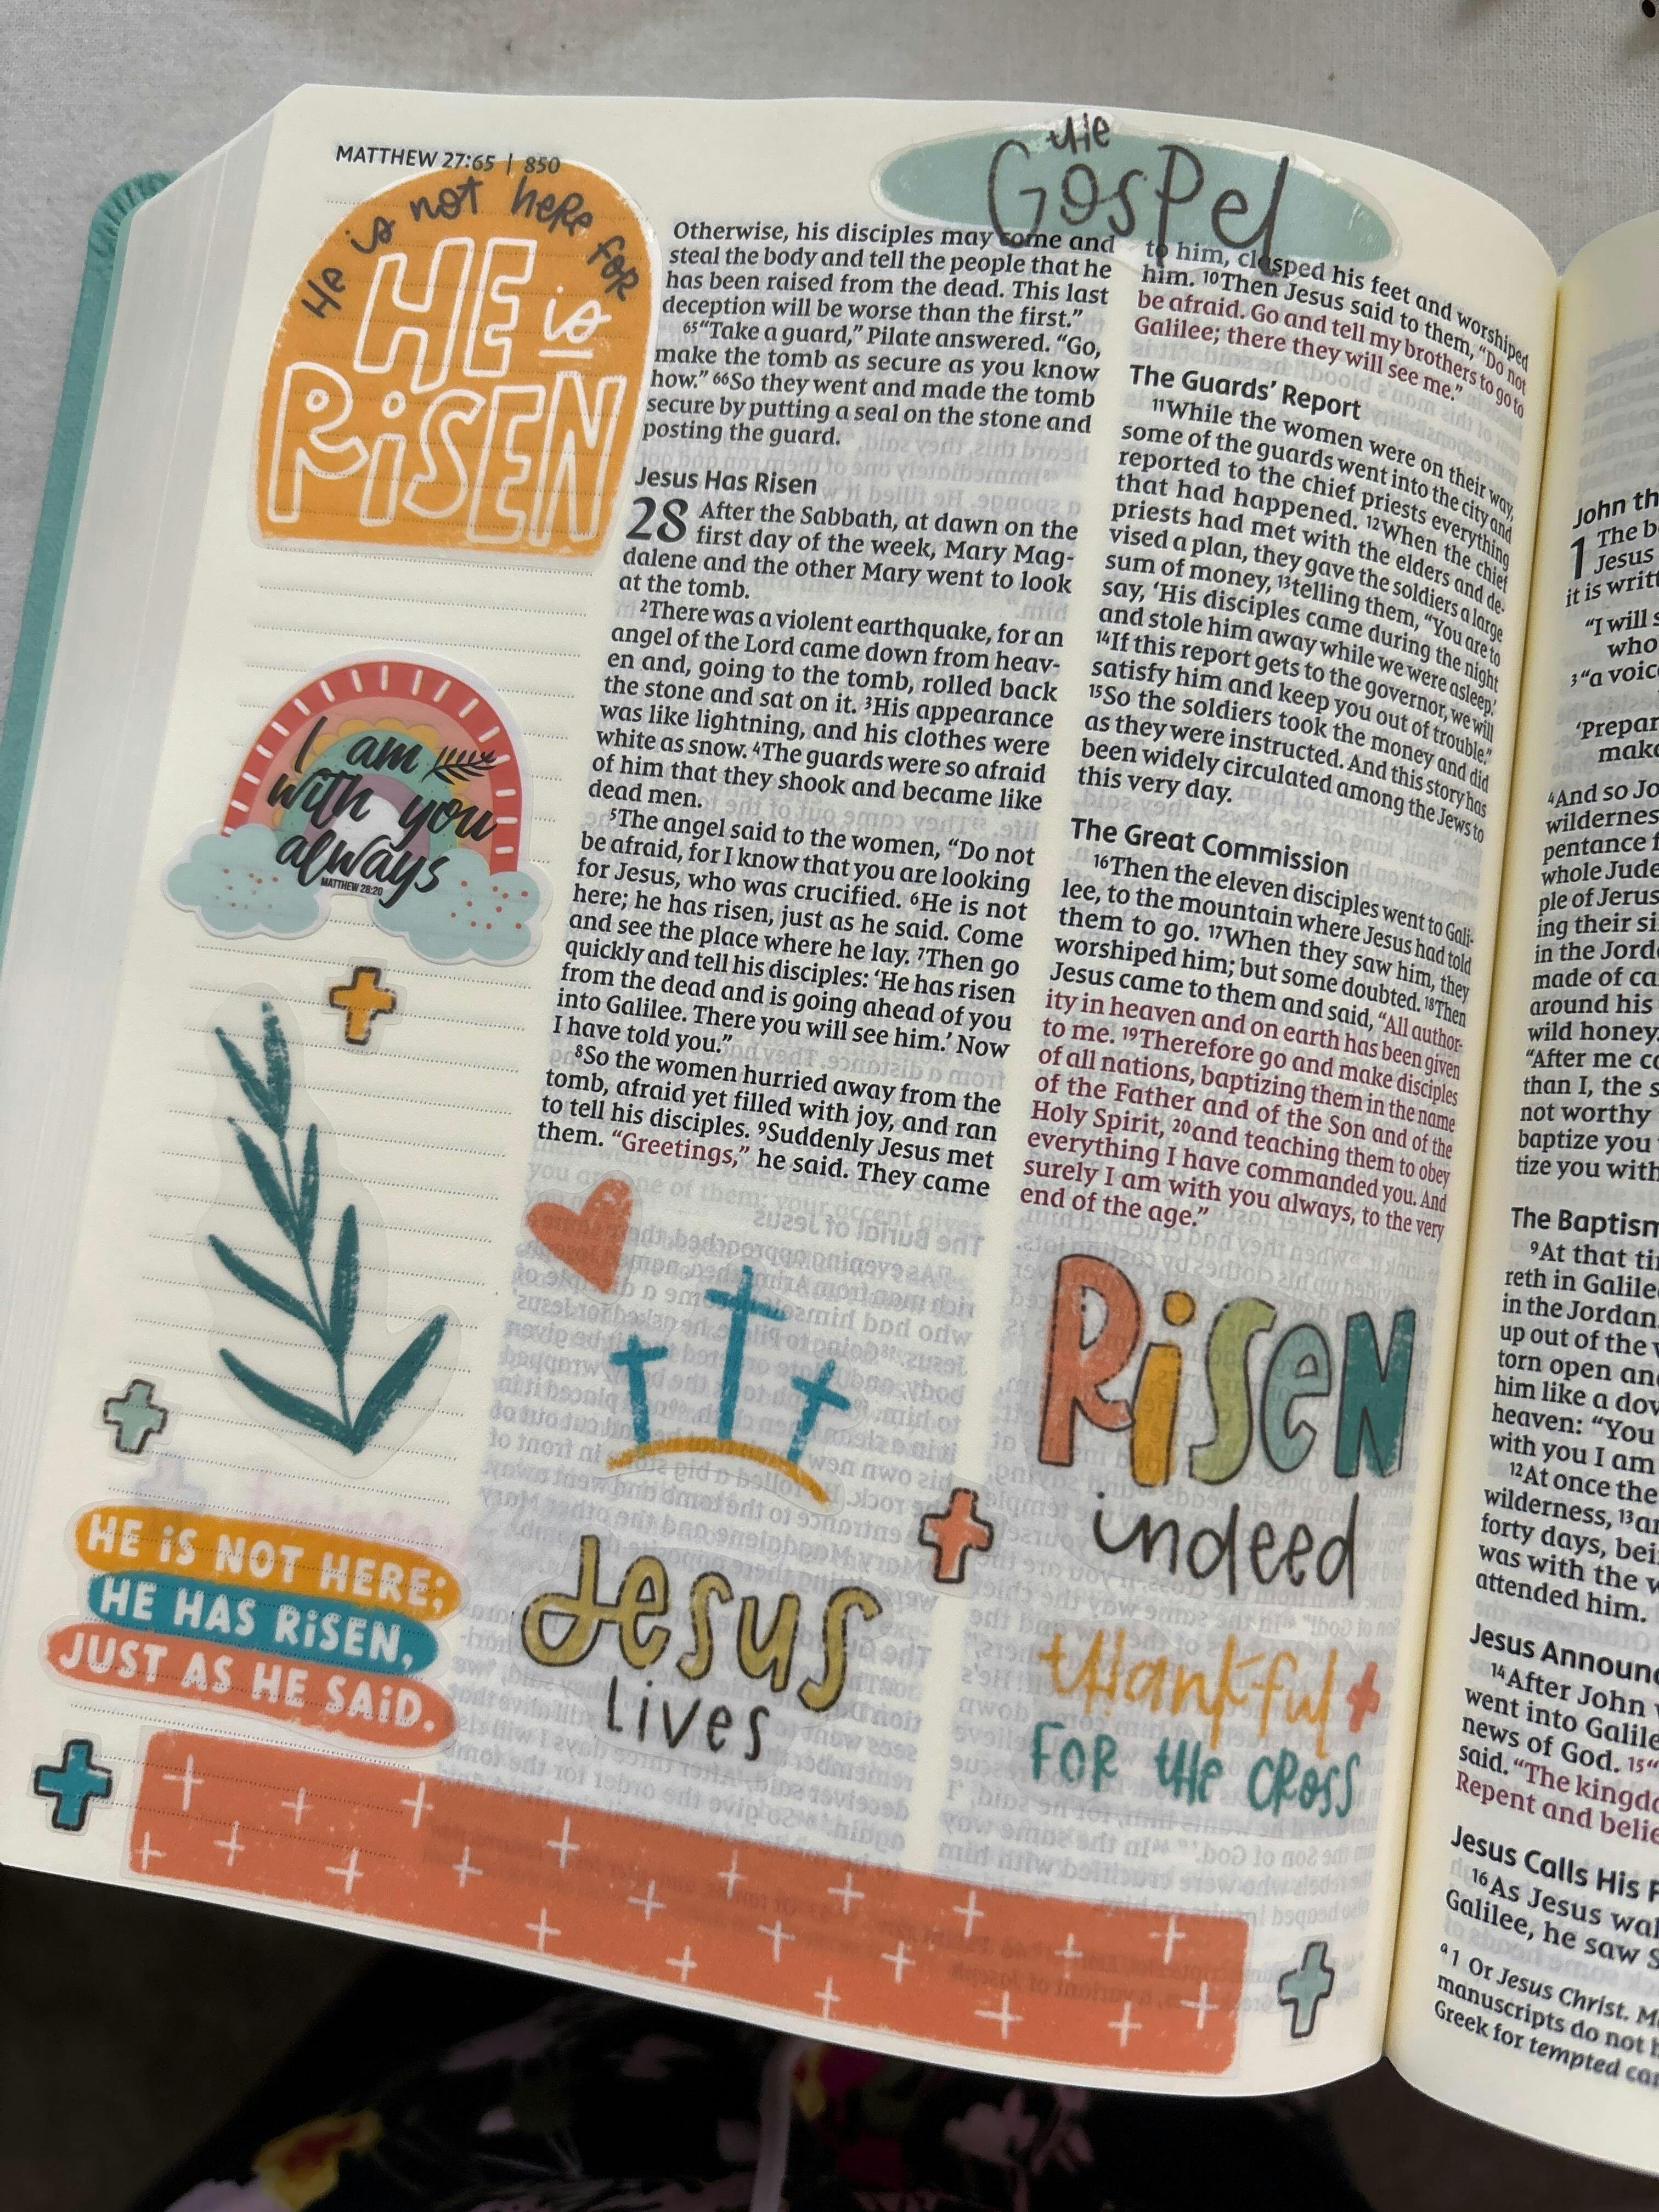 MATTHEW 27:65 | 850
the
Gospel
He is not here for
HE is
RiSEN
Otherwise, his disciples may come and
steal the body and tell the people that he
has been raised from the dead. This last
deception will be worse than the first.”
65“Take a guard,” Pilate answered. “Go,
make the tomb as secure as you know
how.” 66So they went and made the tomb
secure by putting a seal on the stone and
posting the guard.
Jesus Has Risen
28 After the Sabbath, at dawn on the
first day of the week, Mary Mag-
dalene and the other Mary went to look
at the tomb.
2There was a violent earthquake, for an
angel of the Lord came down from heav-
en and, going to the tomb, rolled back
the stone and sat on it. 3His appearance
was like lightning, and his clothes were
white as snow. 4The guards were so afraid
of him that they shook and became like
dead men.
5The angel said to the women, “Do not
be afraid, for I know that you are looking
for Jesus, who was crucified. 6He is not
here; he has risen, just as he said. Come
and see the place where he lay. 7Then go
quickly and tell his disciples: ‘He has risen
from the dead and is going ahead of you
into Galilee. There you will see him.’ Now
I have told you.”
8So the women hurried away from the
tomb, afraid yet filled with joy, and ran
to tell his disciples. 9Suddenly Jesus met
them. “Greetings,” he said. They came
to him, clasped his feet and worshiped
him. 10Then Jesus said to them, “Do not
be afraid. Go and tell my brothers to go to
Galilee; there they will see me.”
The Guards’ Report
11While the women were on their way,
some of the guards went into the city and
reported to the chief priests everything
that had happened. 12When the chief
priests had met with the elders and de-
vised a plan, they gave the soldiers a large
sum of money, 13telling them, “You are to
say, ‘His disciples came during the night
and stole him away while we were asleep.’
14If this report gets to the governor, we will
satisfy him and keep you out of trouble.”
15So the soldiers took the money and did
as they were instructed. And this story has
been widely circulated among the Jews to
this very day.
The Great Commission
16Then the eleven disciples went to Gali-
lee, to the mountain where Jesus had told
them to go. 17When they saw him, they
worshiped him; but some doubted. 18Then
Jesus came to them and said, “All author-
ity in heaven and on earth has been given
to me. 19Therefore go and make disciples
of all nations, baptizing them in the name
of the Father and of the Son and of the
Holy Spirit, 20and teaching them to obey
everything I have commanded you. And
surely I am with you always, to the very
end of the age.”
I am
with you
always
MATTHEW 28:20
HE iS NOT HERE;
HE HAS RiSEN,
JUST AS HE SAiD.
Jesus
lives
RiSEN
indeed
thankful
FOR the CROSS
John th
1 The b
Jesus
it is writt
“I will s
who
3“a voic
‘Prepar
make
4And so Jo
wildernes
pentance f
whole Jude
ple of Jerus
ing their si
in the Jord
made of ca
around his
wild honey.
“After me co
than I, the s
not worthy
baptize you
tize you with
The Baptism
9At that ti
reth in Galile
in the Jordan.
up out of the v
torn open and
him like a dov
heaven: “You
with you I am
12At once the
wilderness, 13an
forty days, bei
was with the w
attended him.
Jesus Announc
14After John w
went into Galile
news of God. 15“
said. “The kingdo
Repent and belie
Jesus Calls His F
16As Jesus wal
Galilee, he saw S
a 1 Or Jesus Christ. M
manuscripts do not h
Greek for tempted can